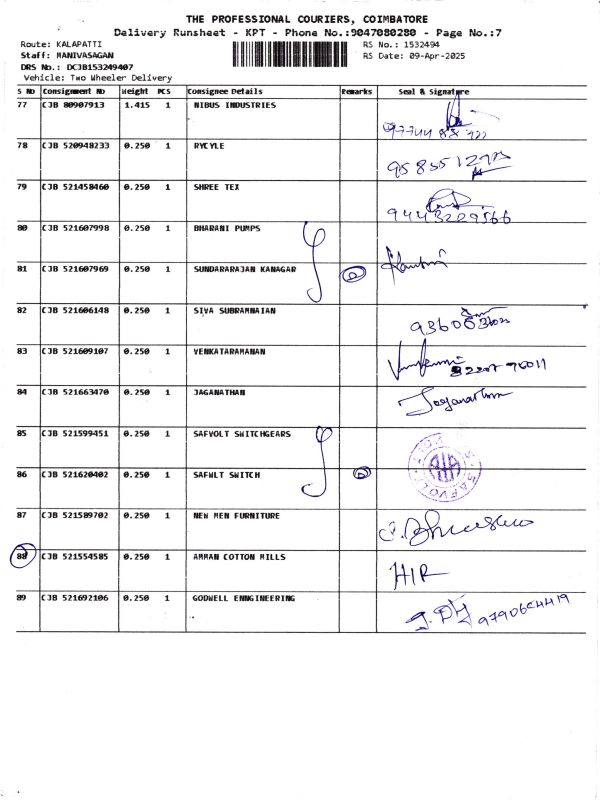 THE PROFESSIONAL COURIERS, COIMBATORE
Delivery Runsheet - KPT - Phone No.:9047080280 - Page No.:7
Route: KALAPATTI RS No.: 1532494
Staff: MANIVASAGAN RS Date: 09-Apr-2025
DRS No.: DCJB153249407
Vehicle: Two Wheeler Delivery
S No Consignment No Weight PCS Consignee Details Remarks Seal & Signature
77 CJB 80907913 1.415 1 NIBUS INDUSTRIES
78 CJB 520948233 0.250 1 RYCYLE
79 CJB 521458460 0.250 1 SHREE TEX
9443229566
80 CJB 521607998 0.250 1 BHARANI PUMPS
81 CJB 521607969 0.250 1 SUNDARARAJAN KANAGAR
82 CJB 521606148 0.250 1 SIVA SUBRAMNAIAN
83 CJB 521609107 0.250 1 VENKATARAMANAN
84 CJB 521663470 0.250 1 JAGANATHAN
85 CJB 521599451 0.250 1 SAFVOLT SWITCHGEARS
86 CJB 521620402 0.250 1 SAFWLT SWITCH
87 CJB 521589702 0.250 1 NEW MEN FURNITURE
88 CJB 521554585 0.250 1 AMMAN COTTON MILLS
HIR
89 CJB 521692106 0.250 1 GODWELL ENNGINEERING